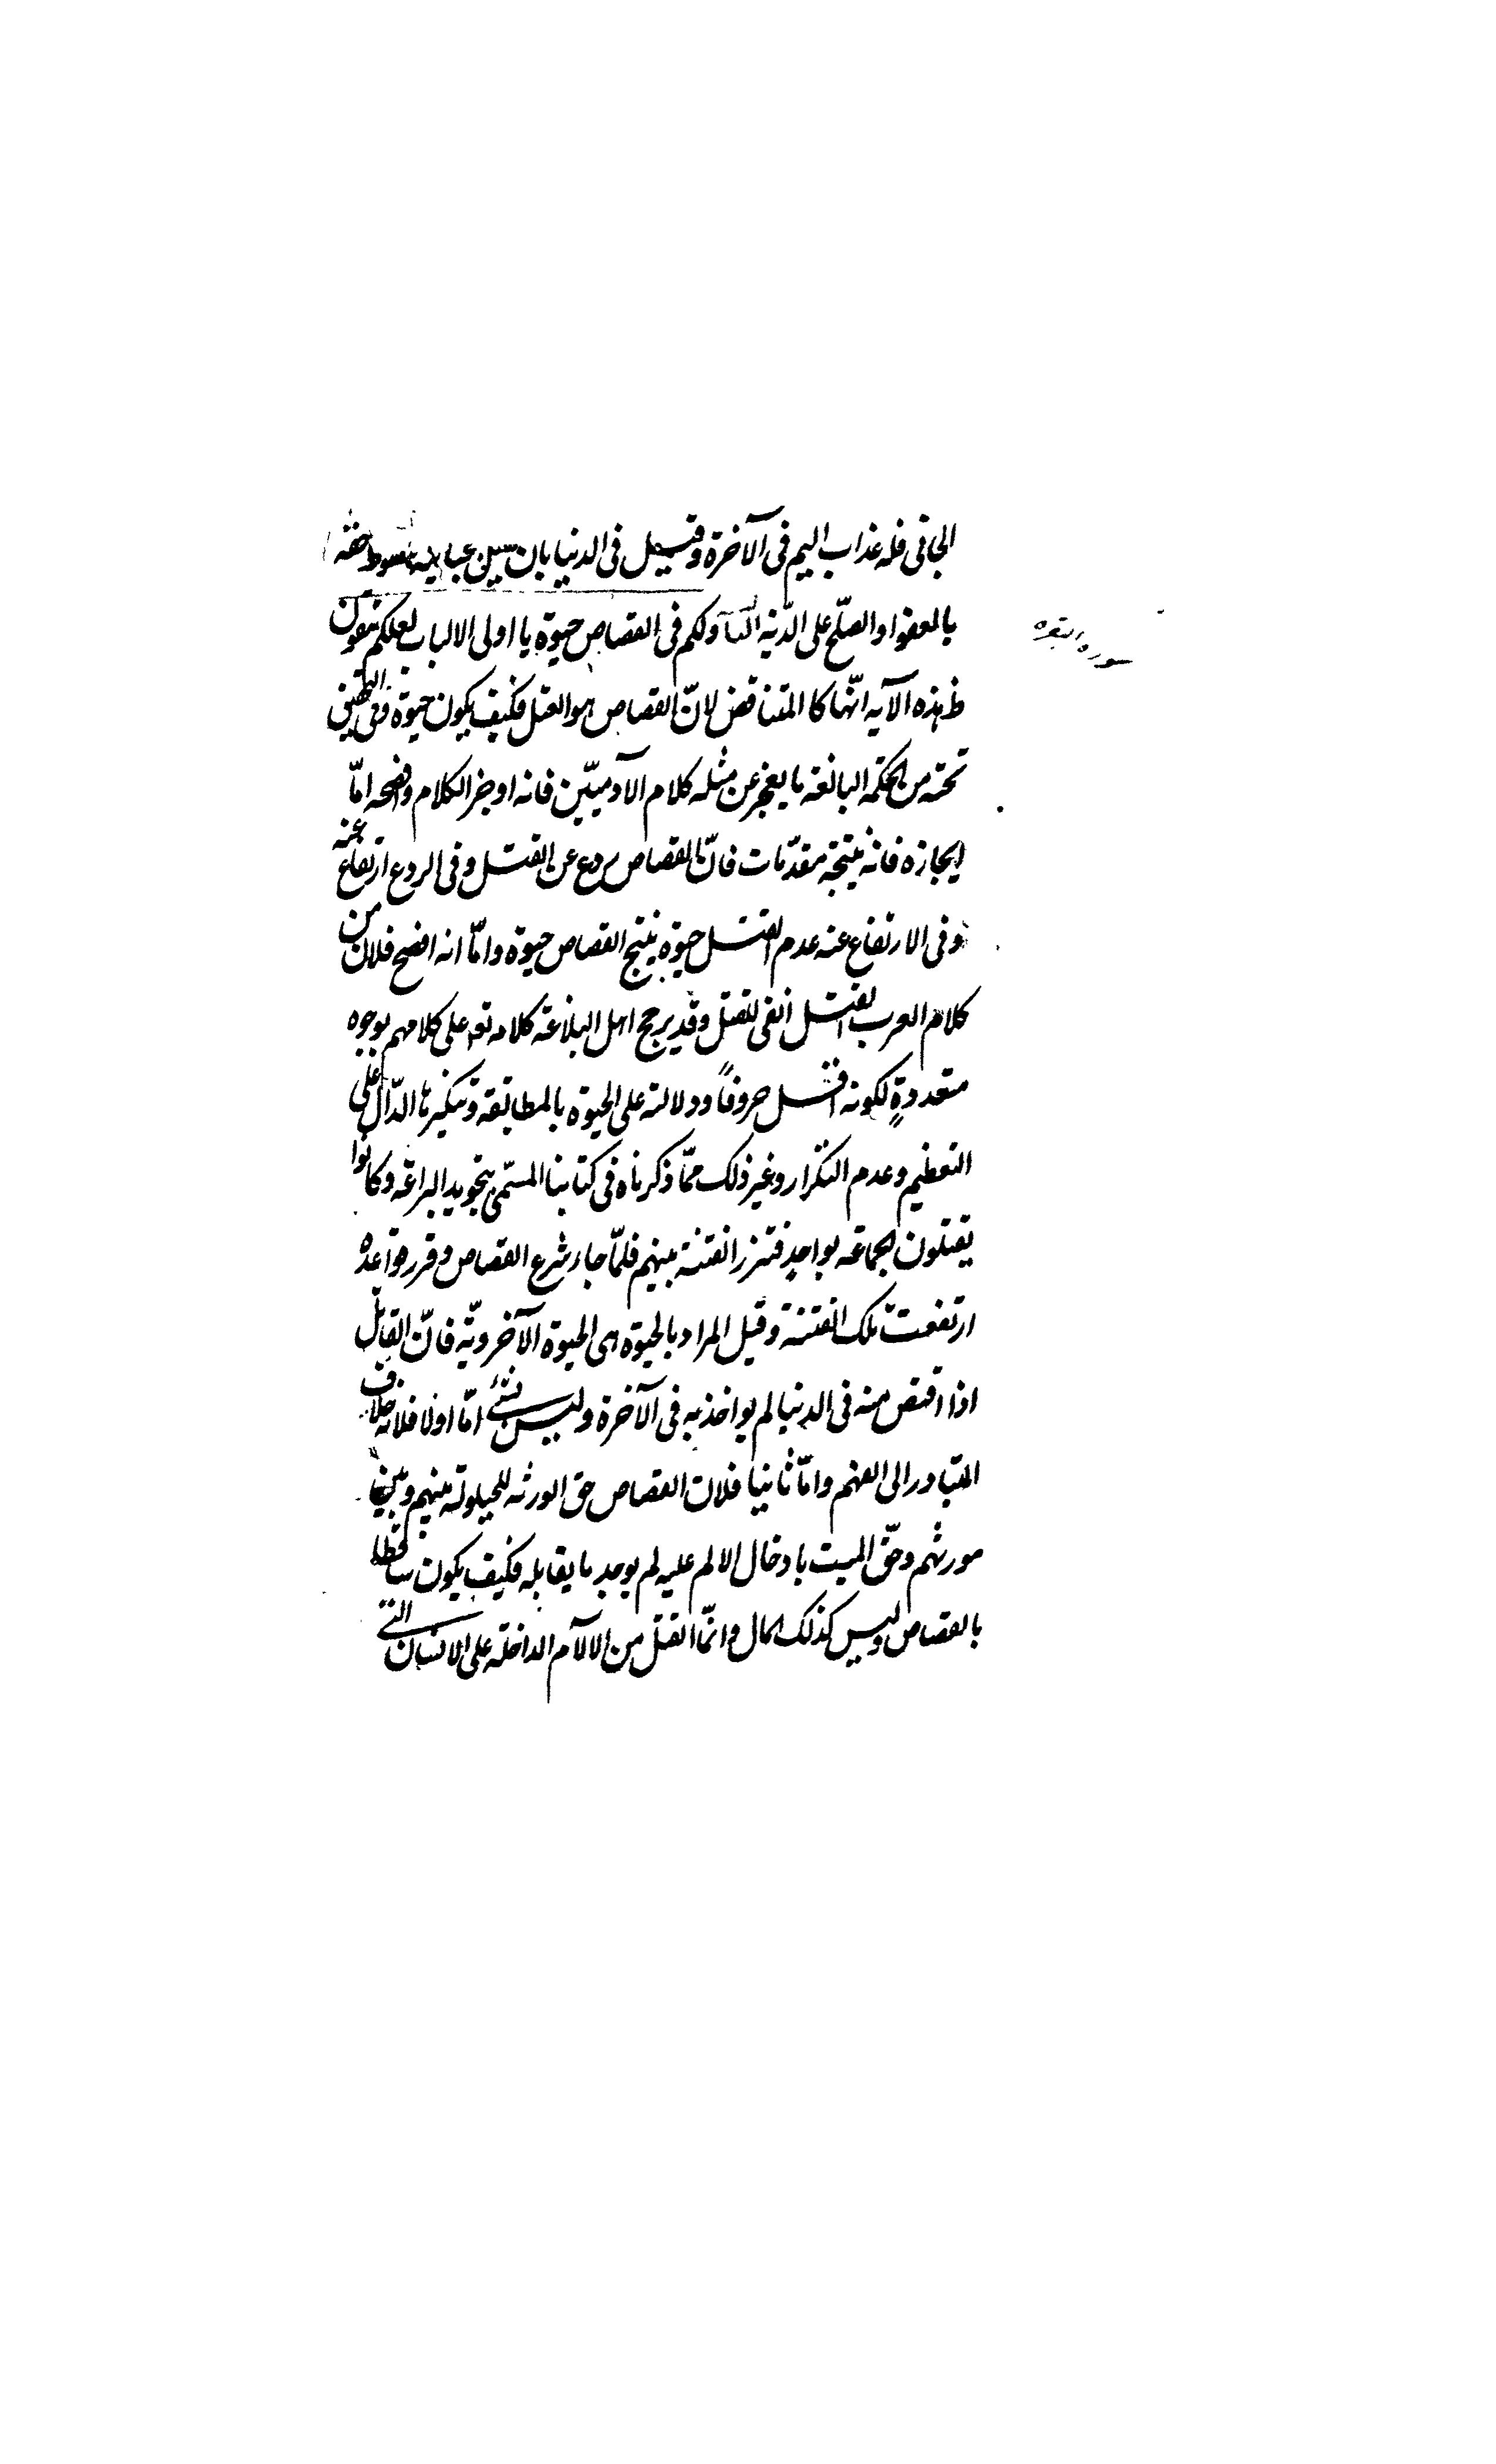 الجافى فله عذاب اليم فى الآخرة وقيل فى الدنيا بان حقه
بالعفو او الصلح على الدّية الثالث ولكم فى القصاص حيوة يا اولى الالباب لعلكم تتقون
ظ هذه الآيه انّها كالمتناقض لانّ القصاص هو القتل فكيف يكون حيوة وفى
تحته من الحكمه البالغه ما يعجز عن مثله كلام الآدميّين فانه اوجز الكلام وافصحه امّا
ايجازه فانه نتيجة مقدّمات فانّ القصاص يردع عن القتل وفى الردع ارتفاع عنه
وفى الارتفاع عنه عدم القتل حيوة ينتج القصاص حيوة وامّا انه افصح فلان من
كلام العرب القتل انفى للقتل وقد يرجح اهل البلاغة كلامه تعه على كلامهم بوجوه
متعددةٍ لكونه اقل حروفاً ودلالته على الحيوة بالمطابقه وتنكيرها الدّال على
التعظيم وعدم التكرار وغير ذلك ممّا ذكرناه فى كتابنا المسمّى بتجويد البراعة وكانوا
يقتلون الجماعه بواحدٍ الفتنة بينهم فلمّا جاء شرع القصاص وقرر قواعده
ارتفعت تلك الفتنة وقيل المراد بالحيوة هى الحيوة الآخرويّه فانّ القاتل
اذا اقتص منه فى الدنيا لم يواخذ به فى الآخرة وليس بشئ امّا اولا فلانّه خلاف
المتبادر الى الفهم وامّا ثانيا فلان القصاص حق الورثه للحيلولة بينهم وبين
مورثهم وحقّ الميت بادخال الالم عليه لم يوجد ما يقابله فكيف يكون ساقطا
بالقصاص وليس كذلك المال وانّما القتل من الالآم الداخلة على الانسان التى
سورة البقره